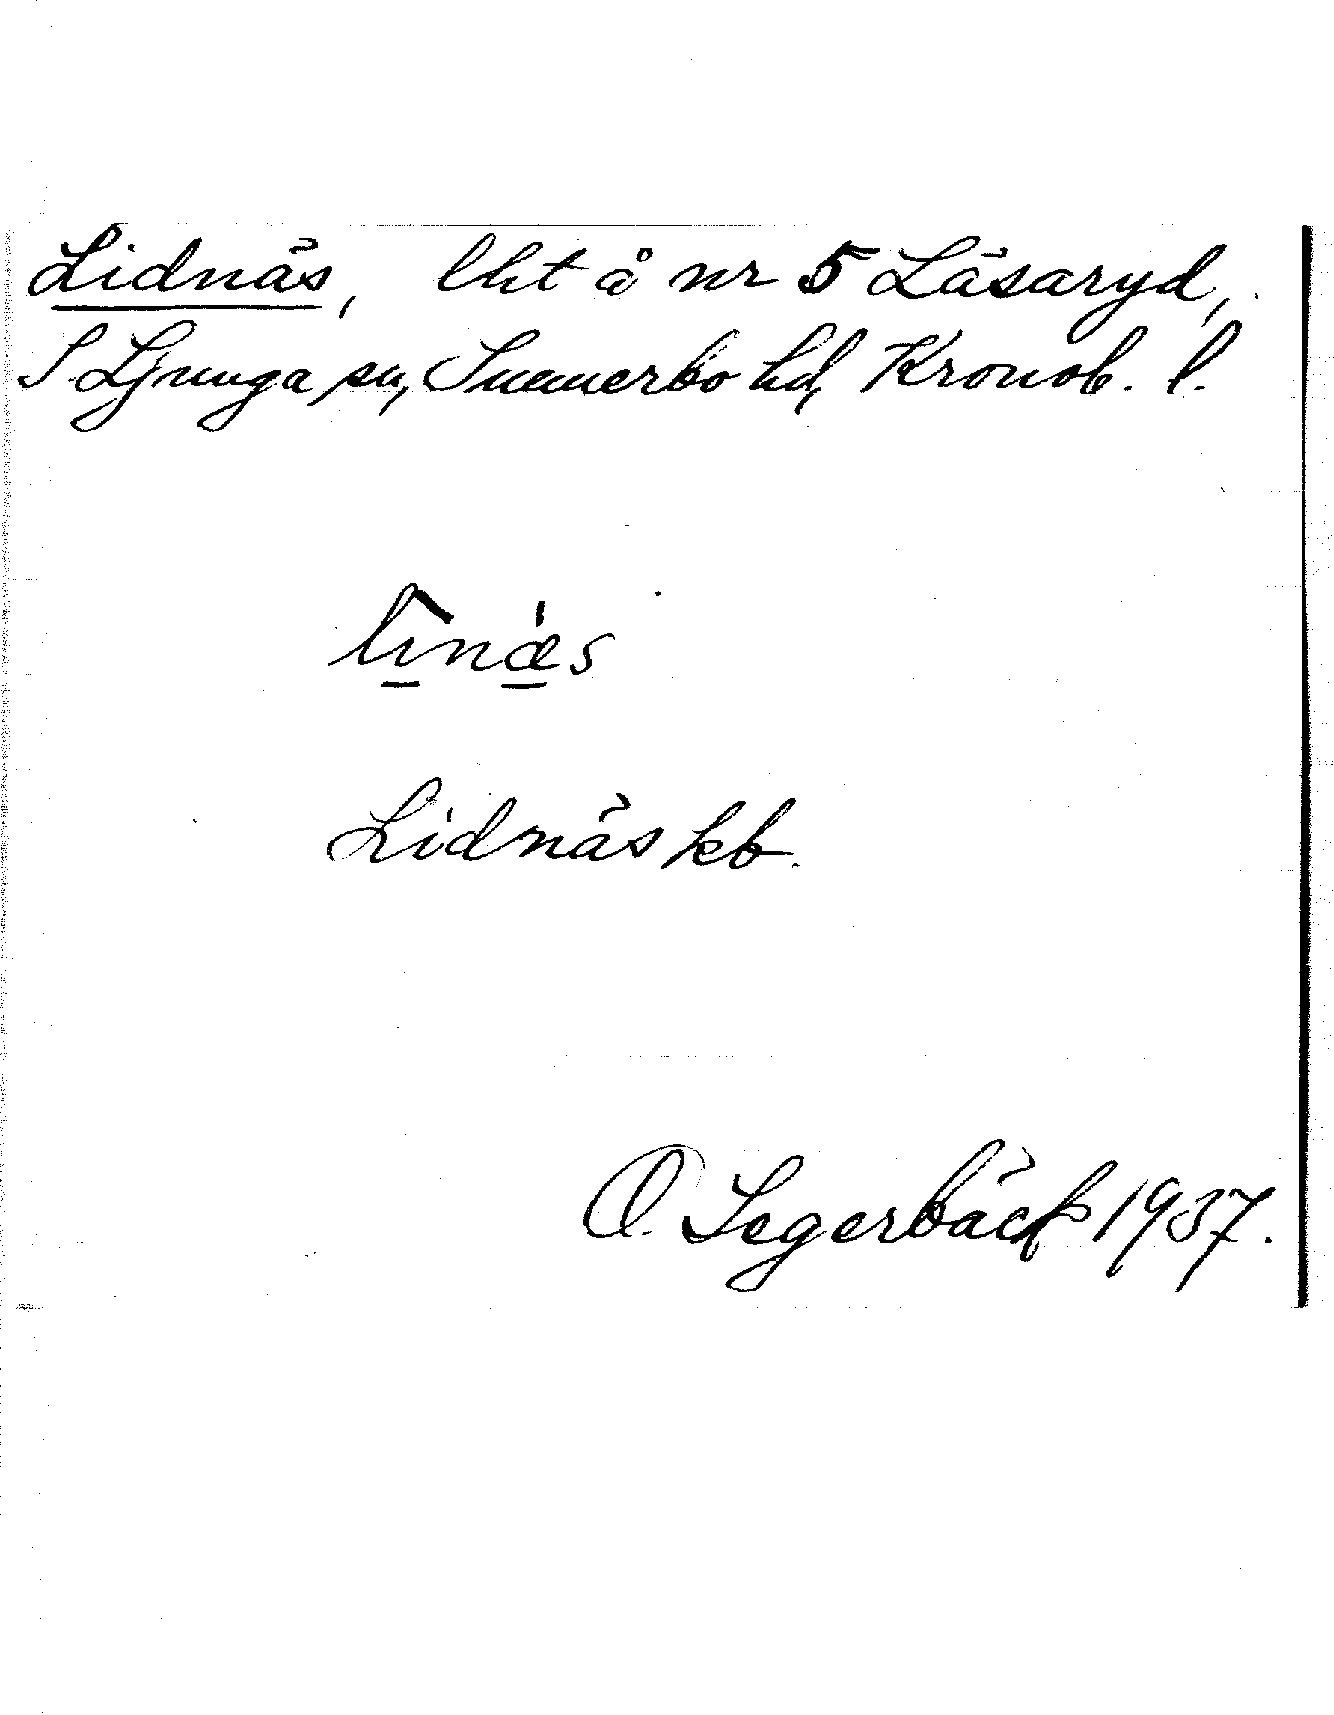 Lidnäs, lht å nr 5 Läsaryd,
S Ljunga sn, Sunnerbo hd, Kronob. l.
lìnǽs
Lidnäs kb.
O. Segerbäck 1937.